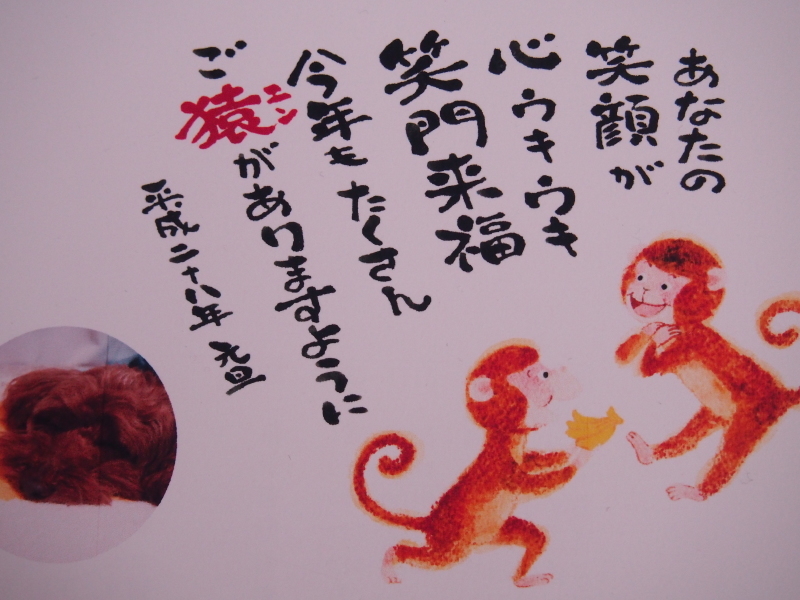 あなたの
笑顔が
心ウキウキ
笑門来福
今年もたくさん
ご猿がありますように
エン
平成二十八年 元旦